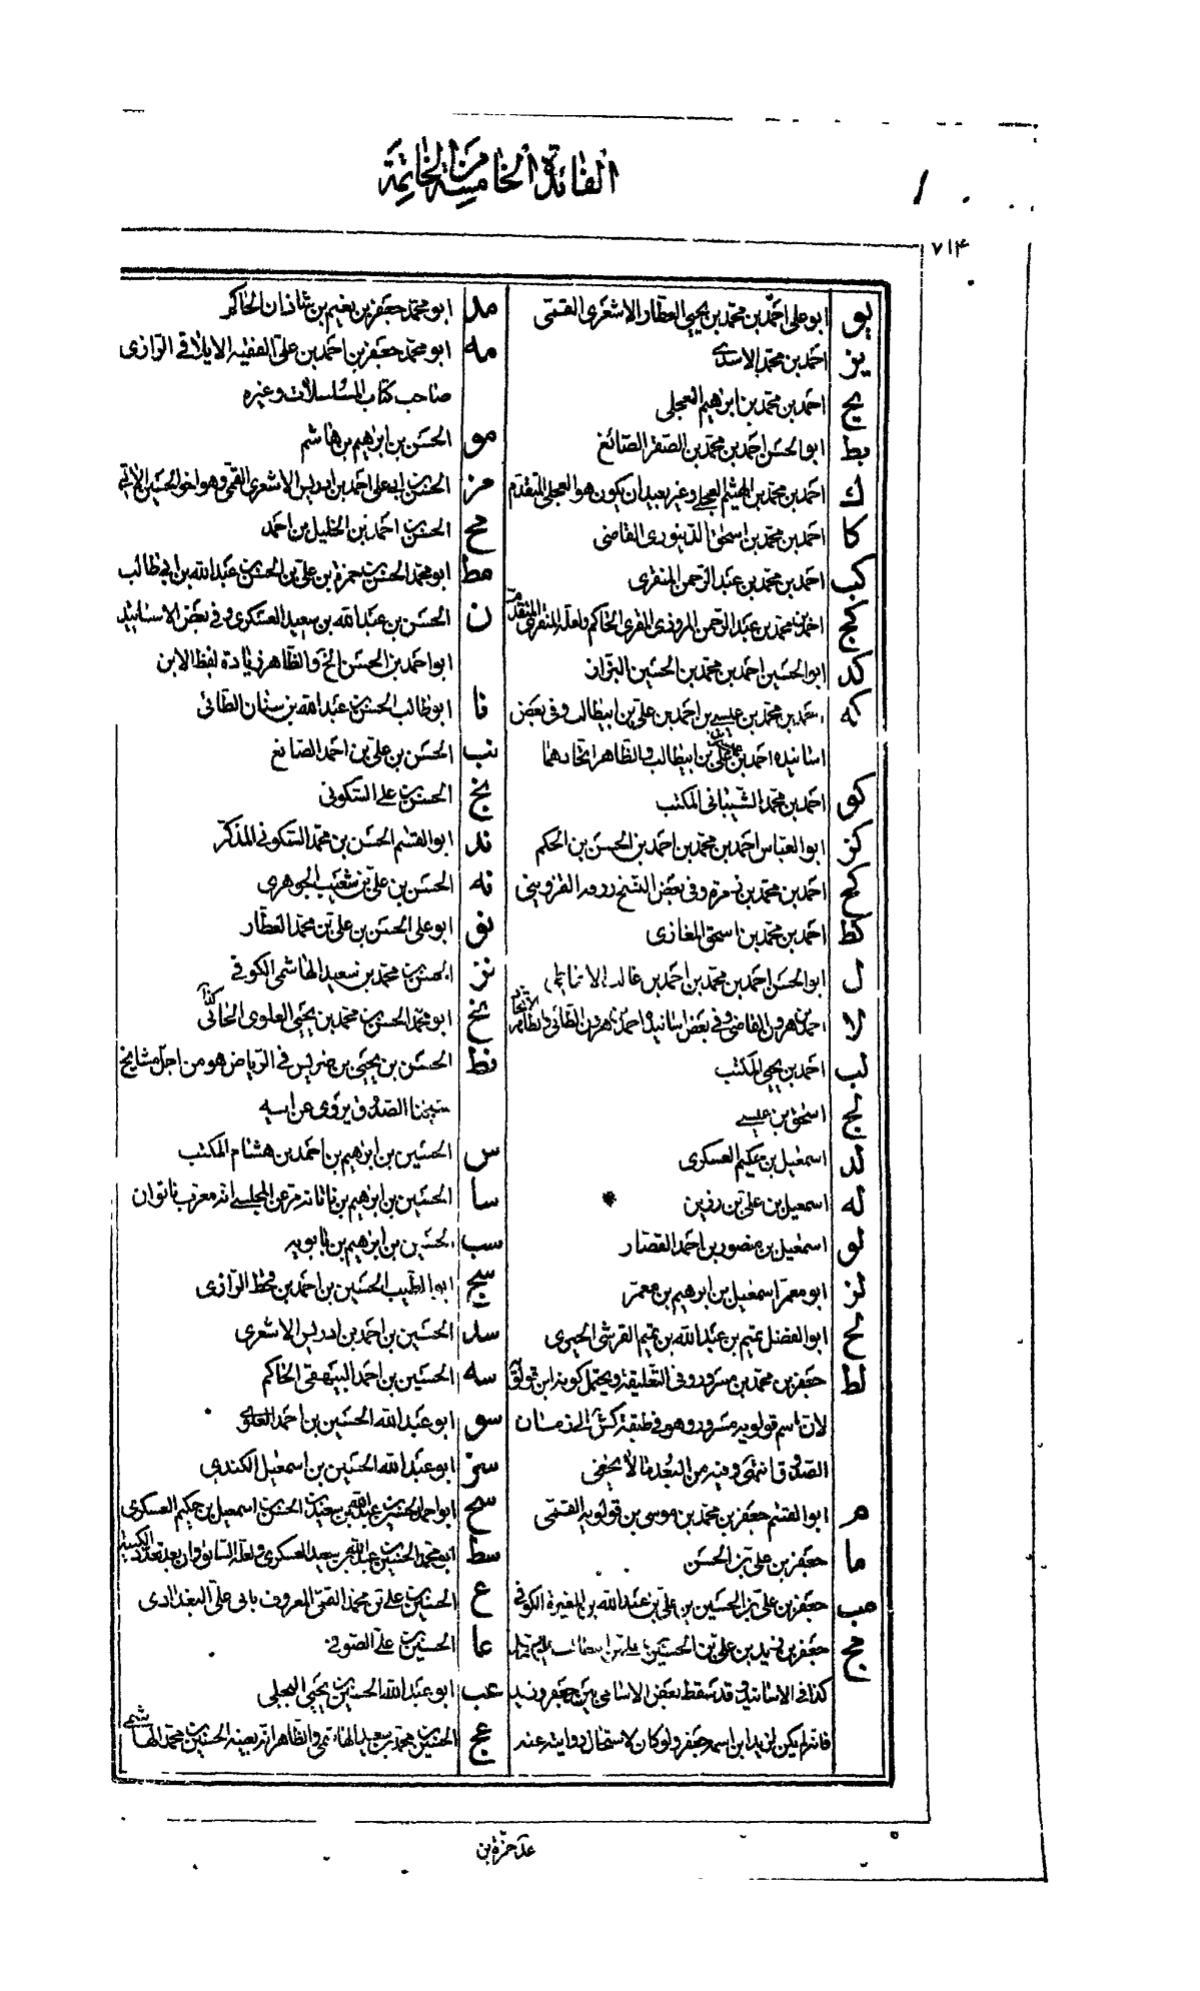 الفائدة الخامسة من الخاتمة
٧١٤
يو ابو على احمد بن محمد بن يحيى العطار الاشعرى القمى
يز احمد بن محمد الاسدى
يح احمد بن محمد بن ابراهيم العجلى
يط ابو الحسن احمد بن محمد بن الصقر الصائغ
ك احمد بن محمد بن الهيثم العجلى وغير بعيد ان يكون هو العجلى المتقدم
كا احمد بن محمد بن اسحق الدينورى القاضى
كب احمد بن محمد بن عبد الرحمن المنقرى
كج احمد بن محمد بن عبد الرحمن المروذى المقرى الحاكم ولعله المنقرى المتقدم
كد ابو الحسين احمد بن محمد بن الحسين البزاز
كه احمد بن محمد بن عيسى بن احمد بن على بن ابيطالب وفى بعض
اسانيده احمد بن على بن ابيطالب والظاهر اتحادهما
كو احمد بن محمد الشيبانى المكتب
كز ابو العباس احمد بن محمد بن احمد بن الحسن بن الحكم
كح احمد بن محمد بن وفى بعض النسخ القزوينى
كط احمد بن محمد بن اسحق المعاذى
ل ابو الحسن احمد بن محمد بن احمد بن غالب الانماطى
لا احمد بن هرون القاضى وفى بعض اسانيده احمد بن هرون الفامى والظاهر الاتحاد
لب احمد بن يحيى المكتب
لج اسحق بن عيسى
لد اسمعيل بن حكيم العسكرى
له اسمعيل بن على بن رزين
لو اسمعيل بن منصور بن احمد القصار
لز ابو معمر اسمعيل بن ابراهيم بن معمر
لح ابو الفضل تميم بن عبد الله بن تميم القرشى الحيرى
لط جعفر بن محمد بن مسرور وفى التعليقة ويحتمل كونه ابن قولويه
لان اسم قولويه مسرور وهو فى طبقة الكشى الى زمان
الصدوق انتهى وفيه من البعد ما لا يخفى
م ابو القسم جعفر بن محمد بن موسى بن قولويه القمى
ما جعفر بن على بن الحسن
مب جعفر بن على بن الحسين بن على بن عبد الله بن المغيرة الكوفى
مج جعفر بن زيد بن على بن الحسين بن على بن ابيطالب
كذا فى الاسانيد قد سقط بعض الاسامى بين جعفر وزيد
فانه لم يكن لزيد ابن اسمه جعفر ولو كان لاستحال روايته عنه
مد ابو محمد جعفر بن نعيم بن شاذان الحاكم
مه ابو محمد جعفر بن احمد بن على الفقيه الايلاقى الرازى
صاحب كتاب المسلسلات وغيره
مو الحسن بن ابراهيم بن هاشم
مز الحسن بن ابى على احمد بن ادريس الاشعرى القمى وهو اخو الحسين الاتى
مح الحسن بن احمد بن الخليل بن احمد
مط ابو محمد الحسن بن حمزة بن على بن الحسين بن عبد الله بن ابى طالب
ن الحسن بن عبد الله بن سعيد العسكرى وفى بعض الاسانيد
ابو احمد بن الحسن الخ والظاهر زيادة لفظ الابن
نا ابو طالب الحسن بن عبد الله بن سنان الطائى
نب الحسن بن على بن احمد الصائغ
نج الحسن بن على السكونى
ند ابو القسم الحسن بن محمد السكونى المذكر
نه الحسن بن على بن شعيب الجوهرى
نو ابو على الحسن بن على بن محمد العطار
نز الحسن بن محمد بن سعيد الهاشمى الكوفى
نح ابو محمد الحسن بن محمد بن يحيى العلوى الحانى كذا
نط الحسن بن يحيى بن ضريس فى الرياض هو من اجل مشايخ
شيخنا الصدوق يروى عن ابيه
س الحسين بن ابراهيم بن احمد بن هشام المكتب
سا الحسين بن ابراهيم بن ناتانه مر عن المجلسى انه معرب ناتوان
سب الحسين بن ابراهيم بن بابويه
سج ابو الطيب الحسين بن احمد بن محمد الرازى
سد الحسين بن احمد بن ادريس الاشعرى
سه الحسين بن احمد البيهقى الحاكم
سو ابو عبد الله الحسين بن احمد العلوى
سز ابو عبد الله الحسين بن اسمعيل الكندى
سح ابو احمد الحسين بن عبد الله بن سعيد بن الحسن بن اسمعيل بن حكيم العسكرى
سط ابو محمد الحسين بن عبد الله بن سعيد العسكرى ولعله السابق وان بعد تعدد الكنية
ع الحسين بن على بن محمد القمى المعروف بابى على البغدادى
عا الحسين بن على الصوفى
عب ابو عبد الله الحسين بن يحيى البجلى
عج الحسين بن محمد بن سعيد الهاشمى والظاهر انه بعينه الحسن بن محمد الهاشمى
عد حمزة بن